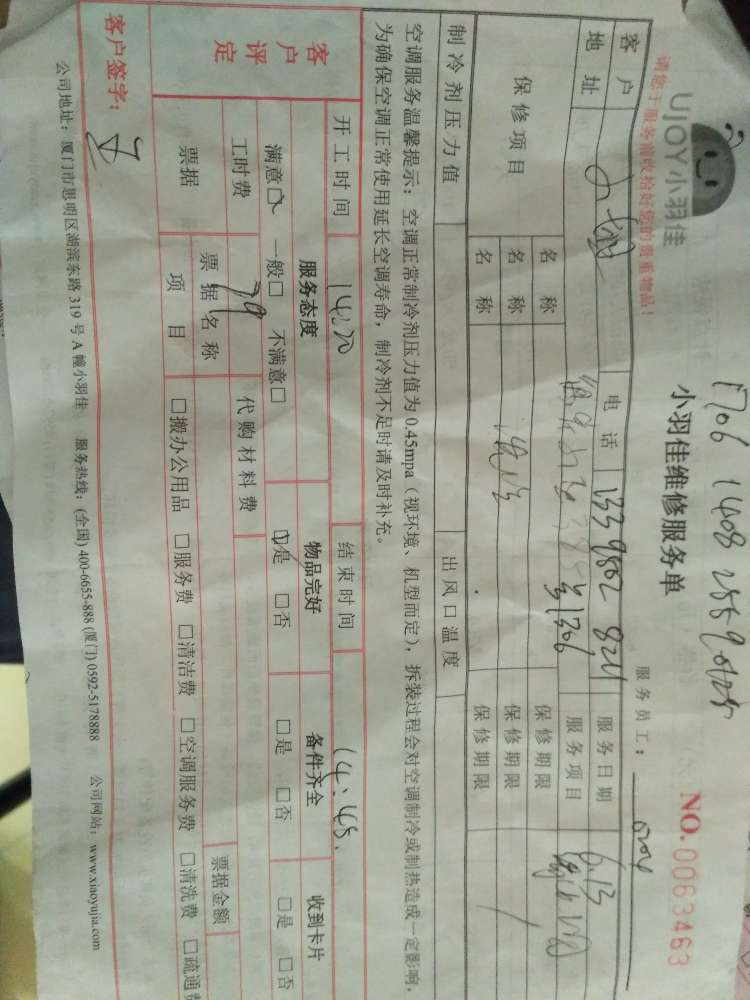 1706 1408 2559 0125
UJOY小羽佳
小羽佳维修服务单
NO.0063463
请您于服务前收拾好您的贵重物品！
服务员工：
客户 电话 133 9802 8211 服务日期 6.13
地址 服务项目
保修项目 名称 保修期限
名称 保修期限
名称 保修期限
制冷剂压力值 出风口温度
空调服务温馨提示：空调正常制冷剂压力值为0.45mpa（视环境、机型而定），拆装过程会对空调制冷或制热造成一定影响，
为确保空调正常使用延长空调寿命，制冷剂不足时请及时补充。
开工时间 14:20 结束时间 14:45
客户评定 服务态度 物品完好 备件齐全 收到卡片
满意□ 一般□ 不满意□ □是 □否 □是 □否 □是 □否
工时费 79 代购材料费
票据 票据名称 票据金额
项目 □搬办公用品 □服务费 □清洁费 □空调服务费 □清洗费 □疏通费
客户签字：
公司地址：厦门市思明区湖滨东路319号A幢小羽佳 服务热线：(全国) 400-6655-888 (厦门) 0592-5178888 公司网站：www.xiaoyujia.com